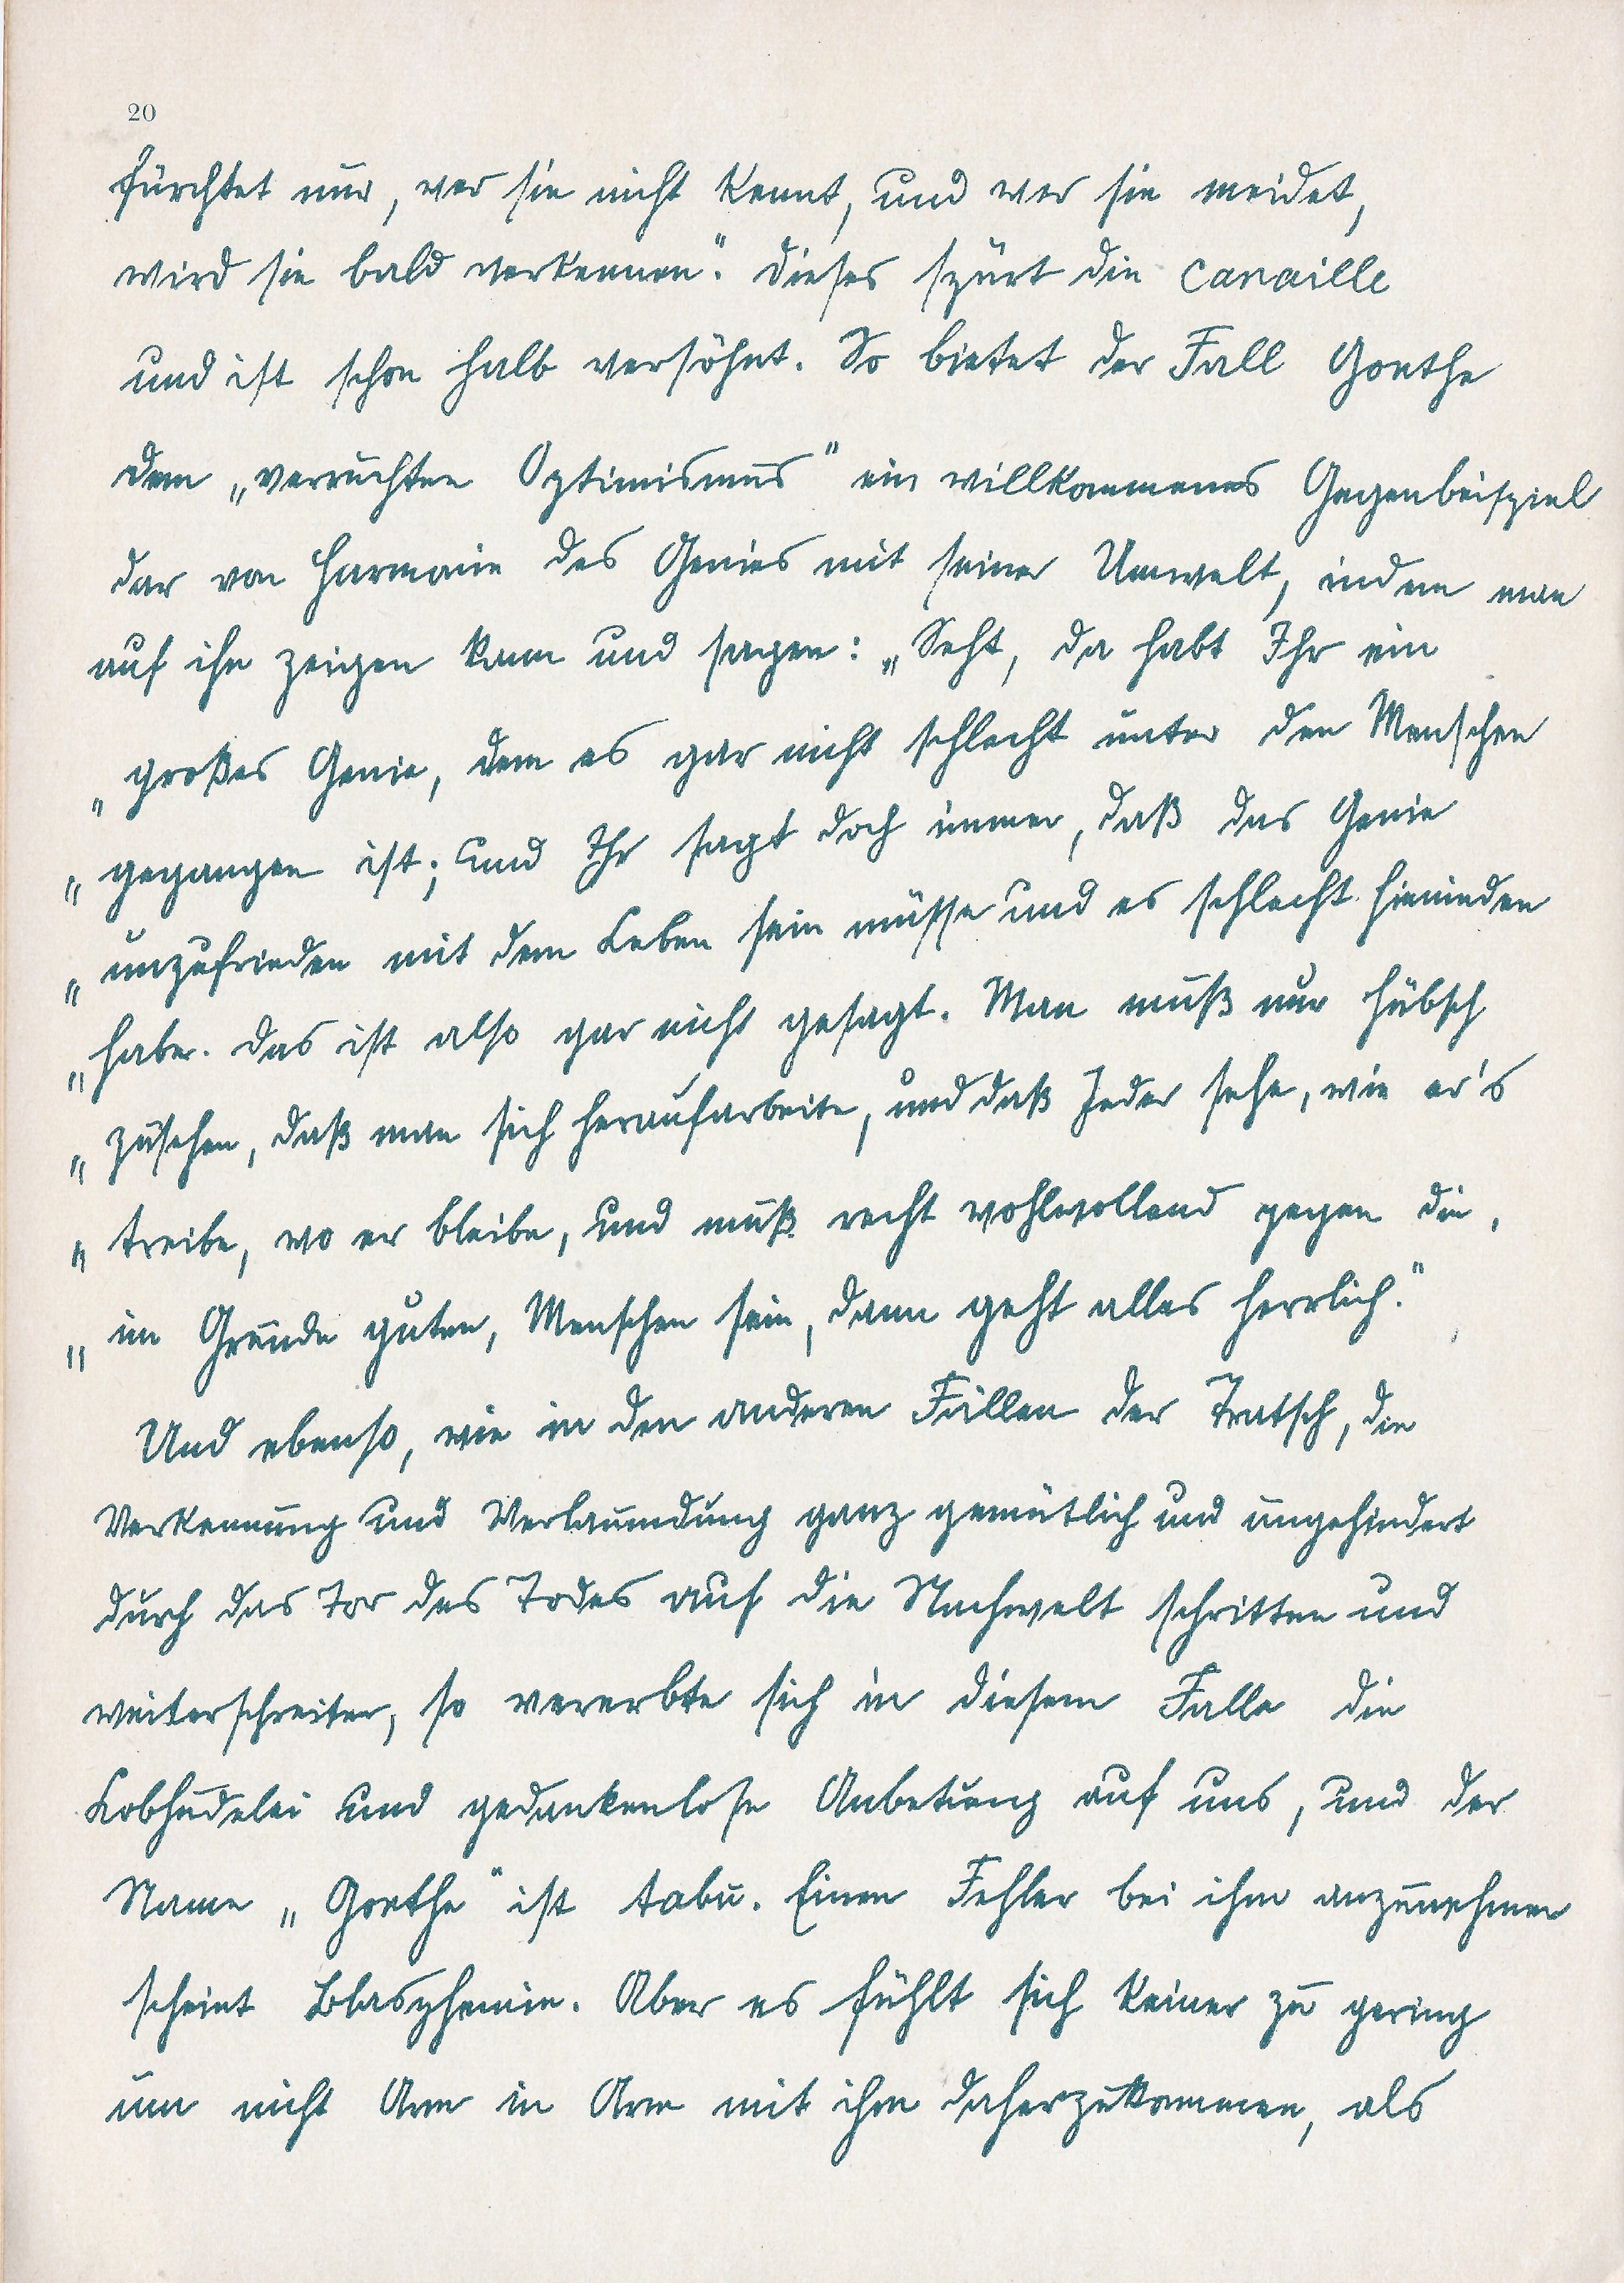 20
fürchtet nur, wer sie nicht kennt, und wer sie meidet,
wird sie bald verkennen“. Dieses spürt die Canaille
und ist schon halb versöhnt. So bietet der Fall Goethe
dem „verruchten Optimismus“ ein willkommenes Gegenbeispiel
dar von Harmonie des Genies mit seiner Umwelt, indem man
auf ihn zeigen kann und sagen: „Seht, da habt Ihr ein
„großes Genie, dem es gar nicht schlecht unter den Menschen
„gegangen ist; und Ihr sagt doch immer, daß das Genie
„unzufrieden mit dem Leben sein müsse und es schlecht hienieden
„habe. Das ist also gar nicht gesagt. Man muß nur hübsch
„zusehen, daß man sich heraufarbeite, und daß Jeder sehe, wie er's
„treibe, wo er bleibe, und muß recht wohlwollend gegen die,
„im Grunde guten, Menschen sein, dann geht alles herrlich.“
Und ebenso, wie in den anderen Fällen der Tratsch, die
Verkennung und Verleumdung ganz gemütlich und ungehindert
durch das Tor des Todes auf die Nachwelt schritten und
weiterschreiten, so vererbte sich in diesem Falle die
Lobhudelei und gedankenlose Anbetung auf uns, und der
Name „Goethe“ ist tabu. Einen Fehler bei ihm anzunehmen
scheint Blasphemie. Aber es fühlt sich keiner zu gering
um nicht Arm in Arm mit ihm daherzukommen, als